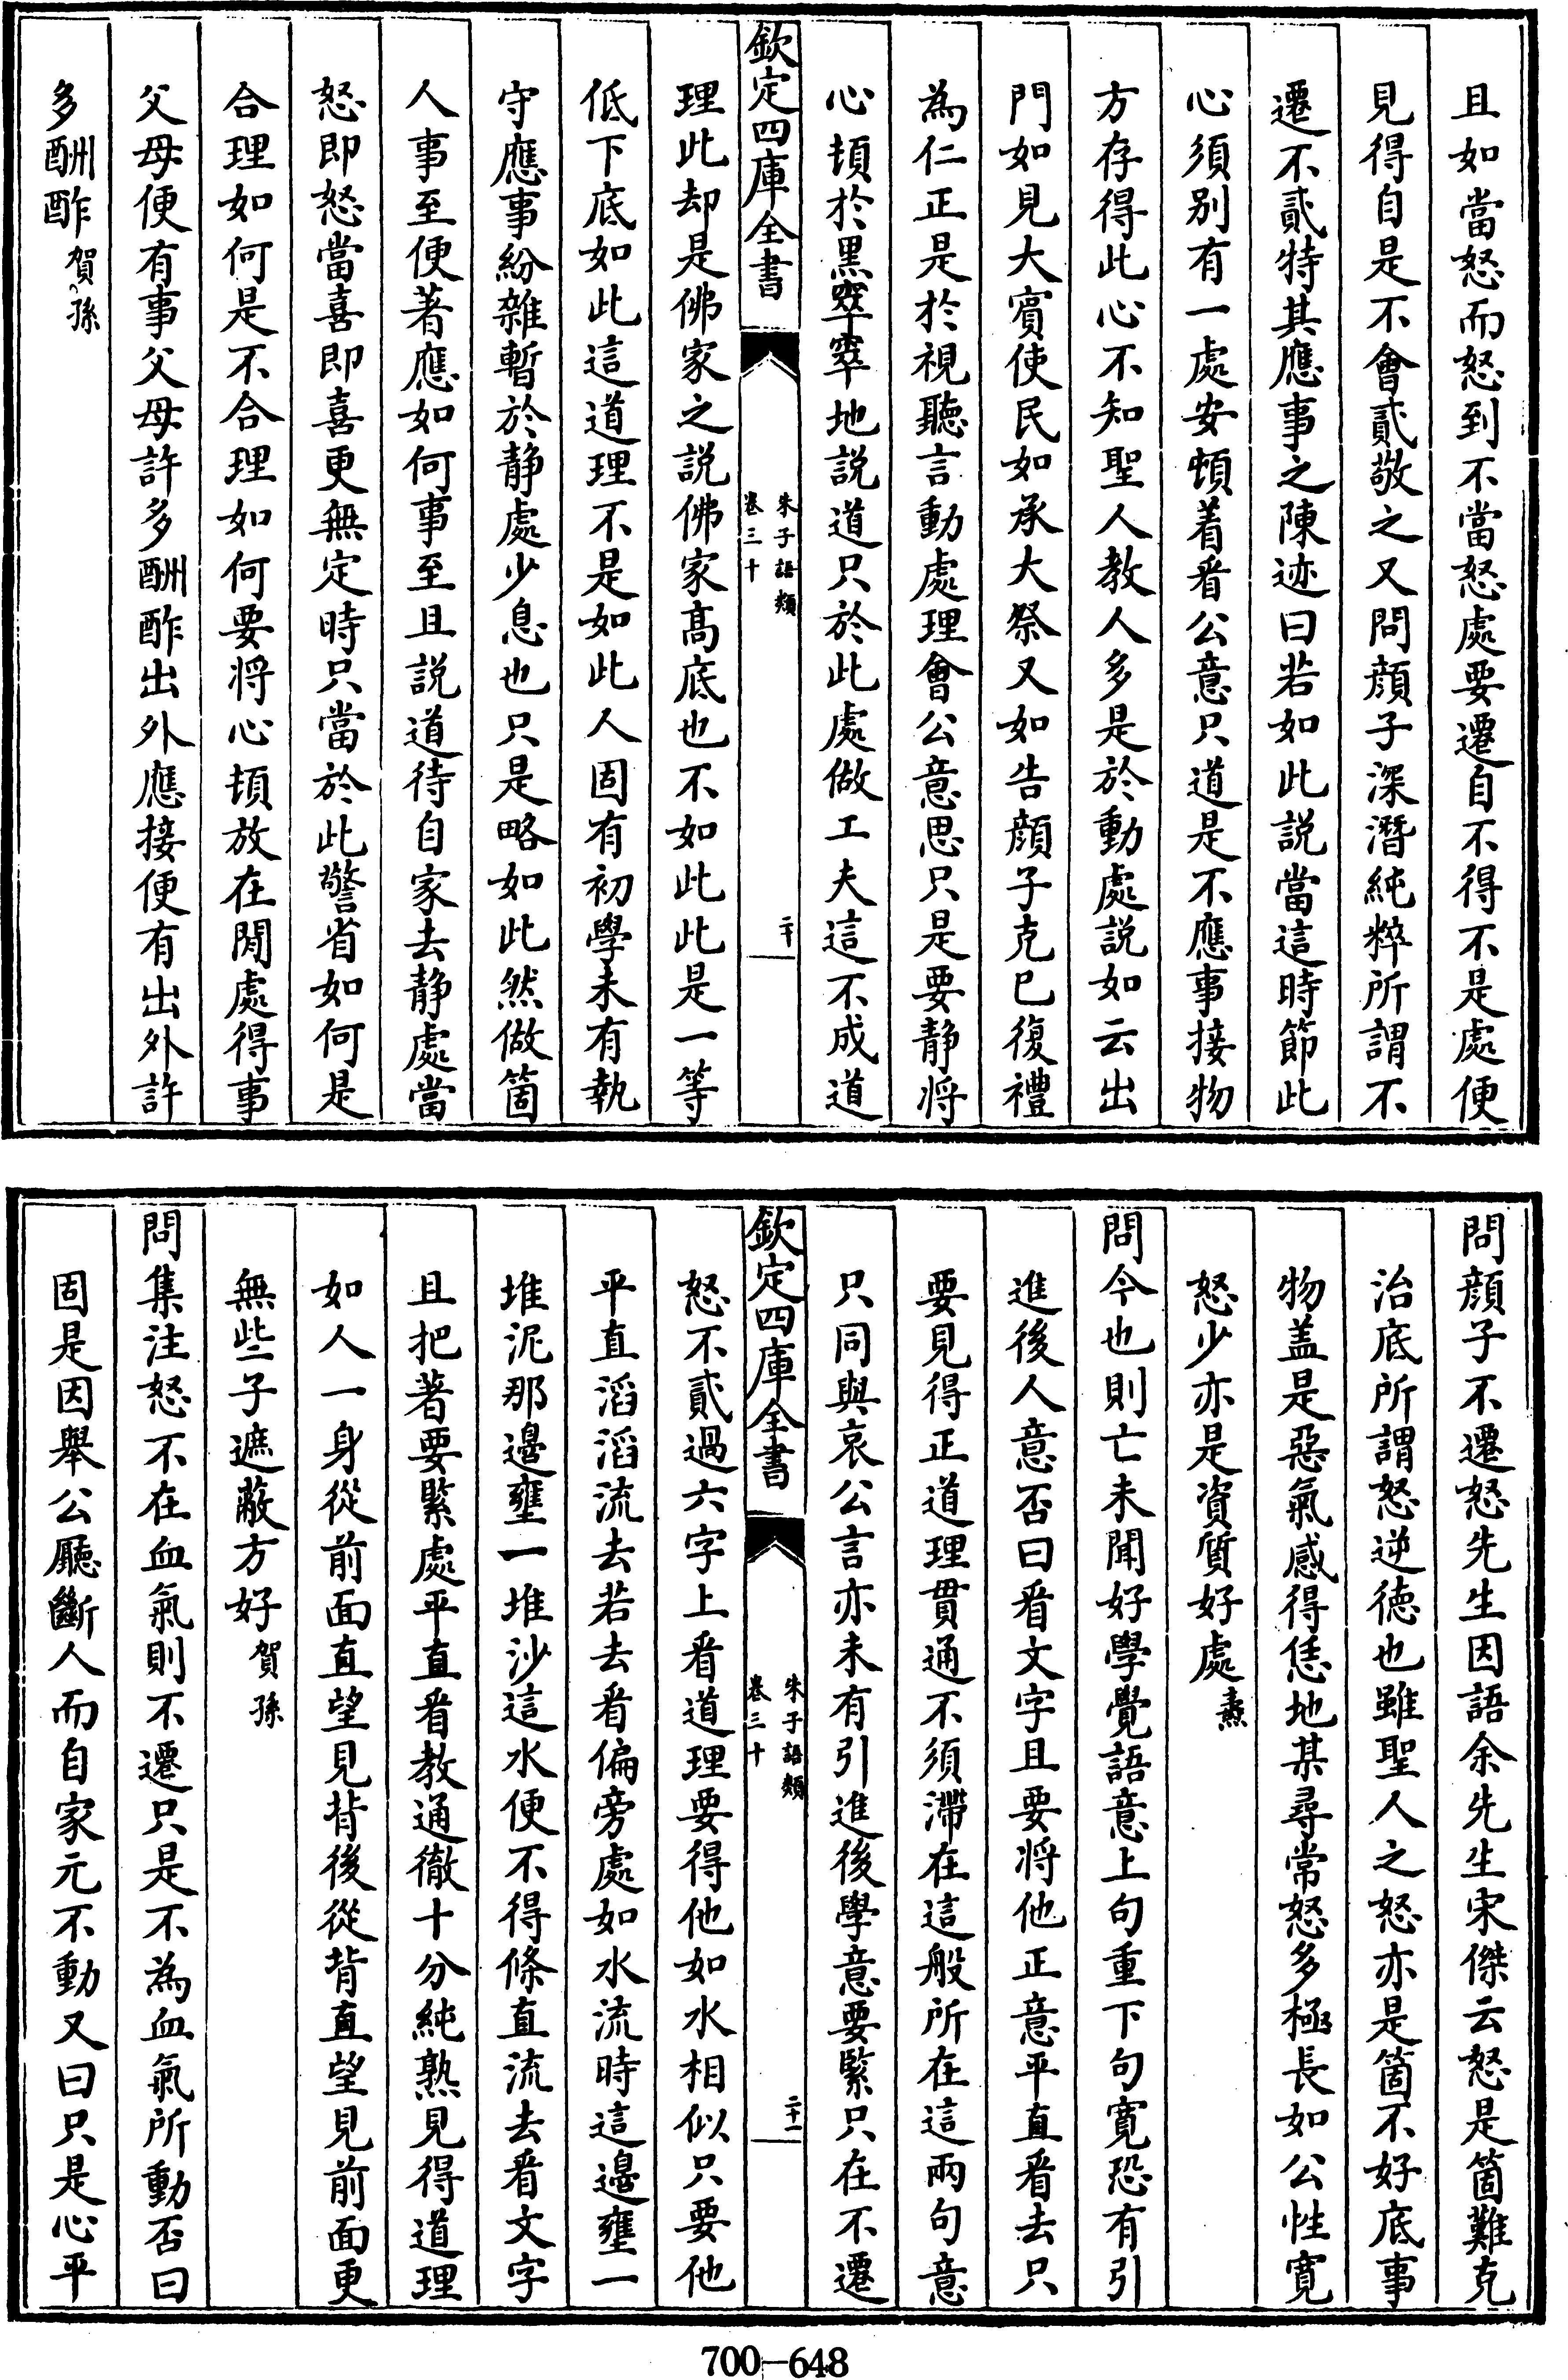 且如當怒而怒到不當怒處要遷自不得不是處便
見得自是不會貳敬之又問顔子深潛純粹所謂不
遷不貳特其應事之陳迹曰若如此説當這時節此
心須别有一處安頓着㸔公意只道是不應事接物
方存得此心不知聖人教人多是於動處説如云出
門如見大賔使民如承大祭又如告顔子克已復禮
為仁正是於視聽言動處理會公意思只是要静将
心頓於黒窣窣地説道只於此處做工夫這不成道
欽定四庫全書
朱子語類
卷三十
二十
理此却是佛家之説佛家髙底也不如此此是一等
低下底如此這道理不是如此人固有初學未有執
守應事紛雜暫於静處少息也只是略如此然做箇
人事至便著應如何事至且説道待自家去静處當
怒即怒當喜即喜更無定時只當於此警省如何是
合理如何是不合理如何要將心頓放在閒處得事
父母便有事父母許多酬酢出外應接便有出外許
多酬酢賀孫
問顔子不遷怒先生因語余先生宋傑云怒是箇難克
治底所謂怒逆徳也雖聖人之怒亦是箇不好底事
物盖是惡氣感得恁地某尋常怒多極長如公性寛
怒少亦是資質好處燾
問今也則亡未聞好學覺語意上句重下句寛恐有引
進後人意否曰㸔文字且要将他正意平直㸔去只
要見得正道理貫通不須滯在這般所在這兩句意
只同與哀公言亦未有引進後學意要緊只在不遷
欽定四庫全書
朱子語類
卷三十
二十一
怒不貳過六字上㸔道理要得他如水相似只要他
平直滔滔流去若去㸔偏旁處如水流時這邉壅一
堆泥那邉壅一堆沙這水便不得條直流去㸔文字
且把著要緊處平直㸔教通徹十分純熟見得道理
如人一身從前面直望見背後從背直望見前面更
無些子遮蔽方好賀孫
問集注怒不在血氣則不遷只是不為血氣所動否曰
固是因舉公廳斷人而自家元不動又曰只是心平
700-648